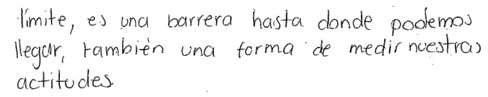 límite, es una barrera hasta donde podemos
llegar, también una forma de medir nuestras
actitudes